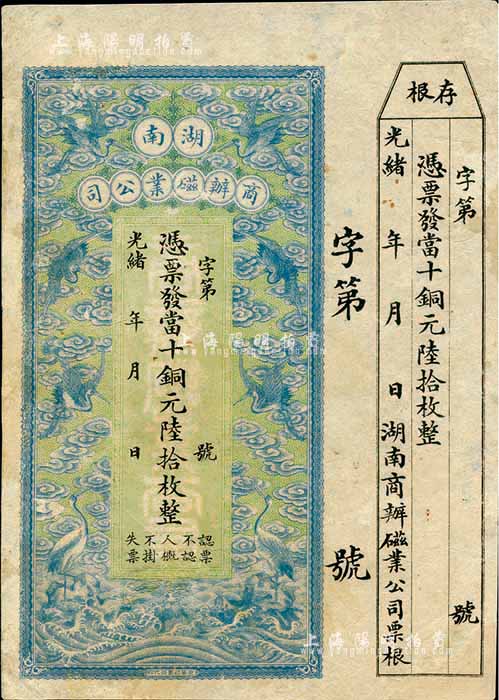 上海陽明拍賣
湖南
商辦磁業公司
字第 號
憑票發當十銅元陸拾枚整
光緒 年 月 日
認票不認人概不掛失票
字第 號
存根
字第 號
憑票發當十銅元陸拾枚整
光緒 年 月 日湖南商辦磁業公司票根
上海陽明拍賣
上海陽明拍賣